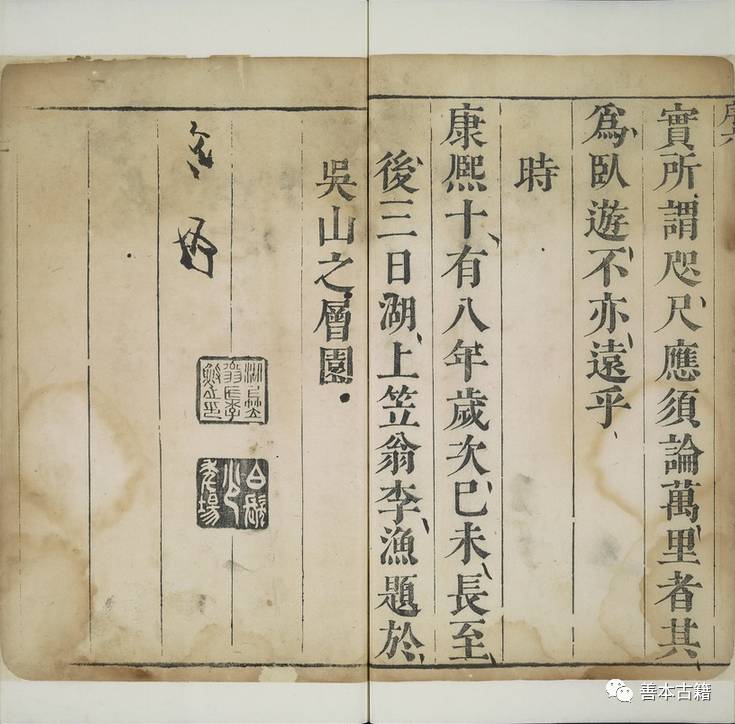 實所謂咫尺應須論萬里者其
爲臥遊不亦遠乎
時
康熙十有八年歲次巳未長至
後三日湖上笠翁李漁題於
吳山之層園
白髮
少
年場
善本古籍